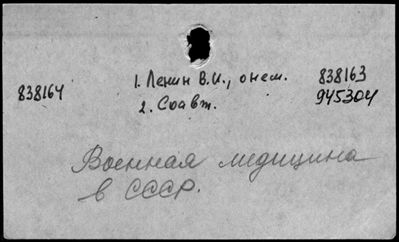 1. Ленин В.И., о нем. 838163
838164
2. Соавт. 945304
Военная медицина
в СССР.